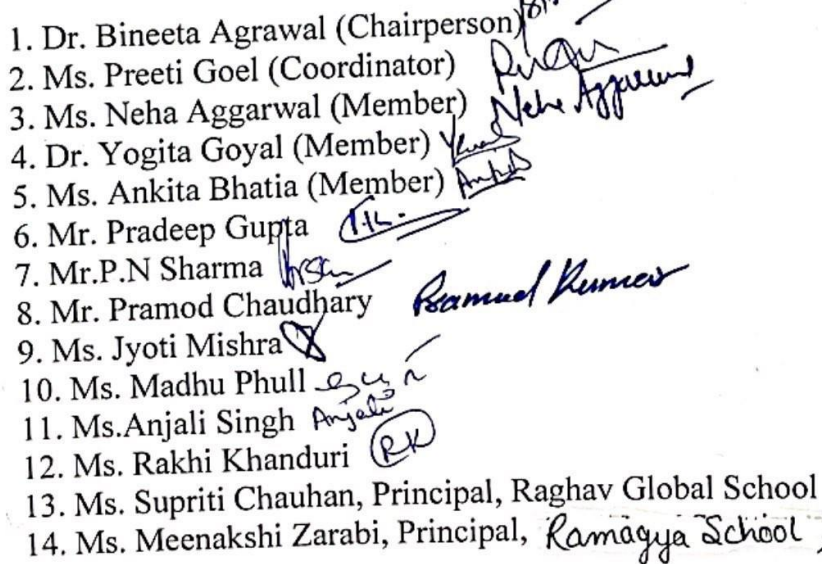 1. Dr. Bineeta Agrawal (Chairperson)
2. Ms. Preeti Goel (Coordinator)
3. Ms. Neha Aggarwal (Member) Neha Aggarwal
4. Dr. Yogita Goyal (Member)
5. Ms. Ankita Bhatia (Member)
6. Mr. Pradeep Gupta
7. Mr.P.N Sharma
8. Mr. Pramod Chaudhary Pramod Kumar
9. Ms. Jyoti Mishra
10. Ms. Madhu Phull
11. Ms.Anjali Singh Anjali
12. Ms. Rakhi Khanduri RK
13. Ms. Supriti Chauhan, Principal, Raghav Global School
14. Ms. Meenakshi Zarabi, Principal, Ramagya School,